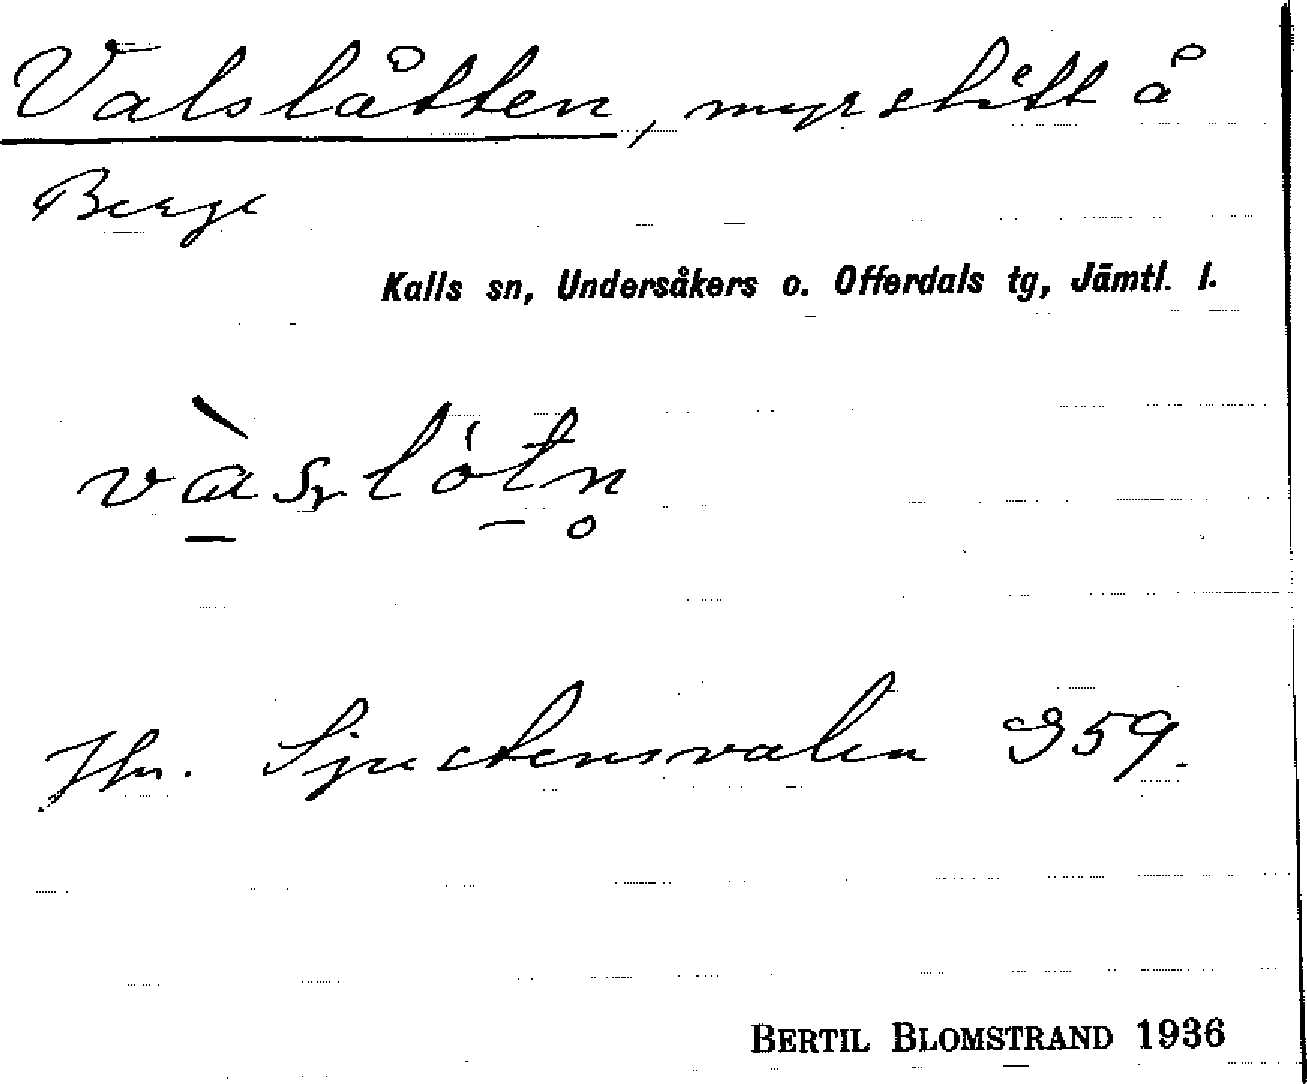 Valslåtten, myrslått å
Berge
Kalls sn, Undersåkers o. Offerdals tg, Jämtl. l.
Jfr. Sjuctensvalen 959.
BERTIL BLOMSTRAND 1936